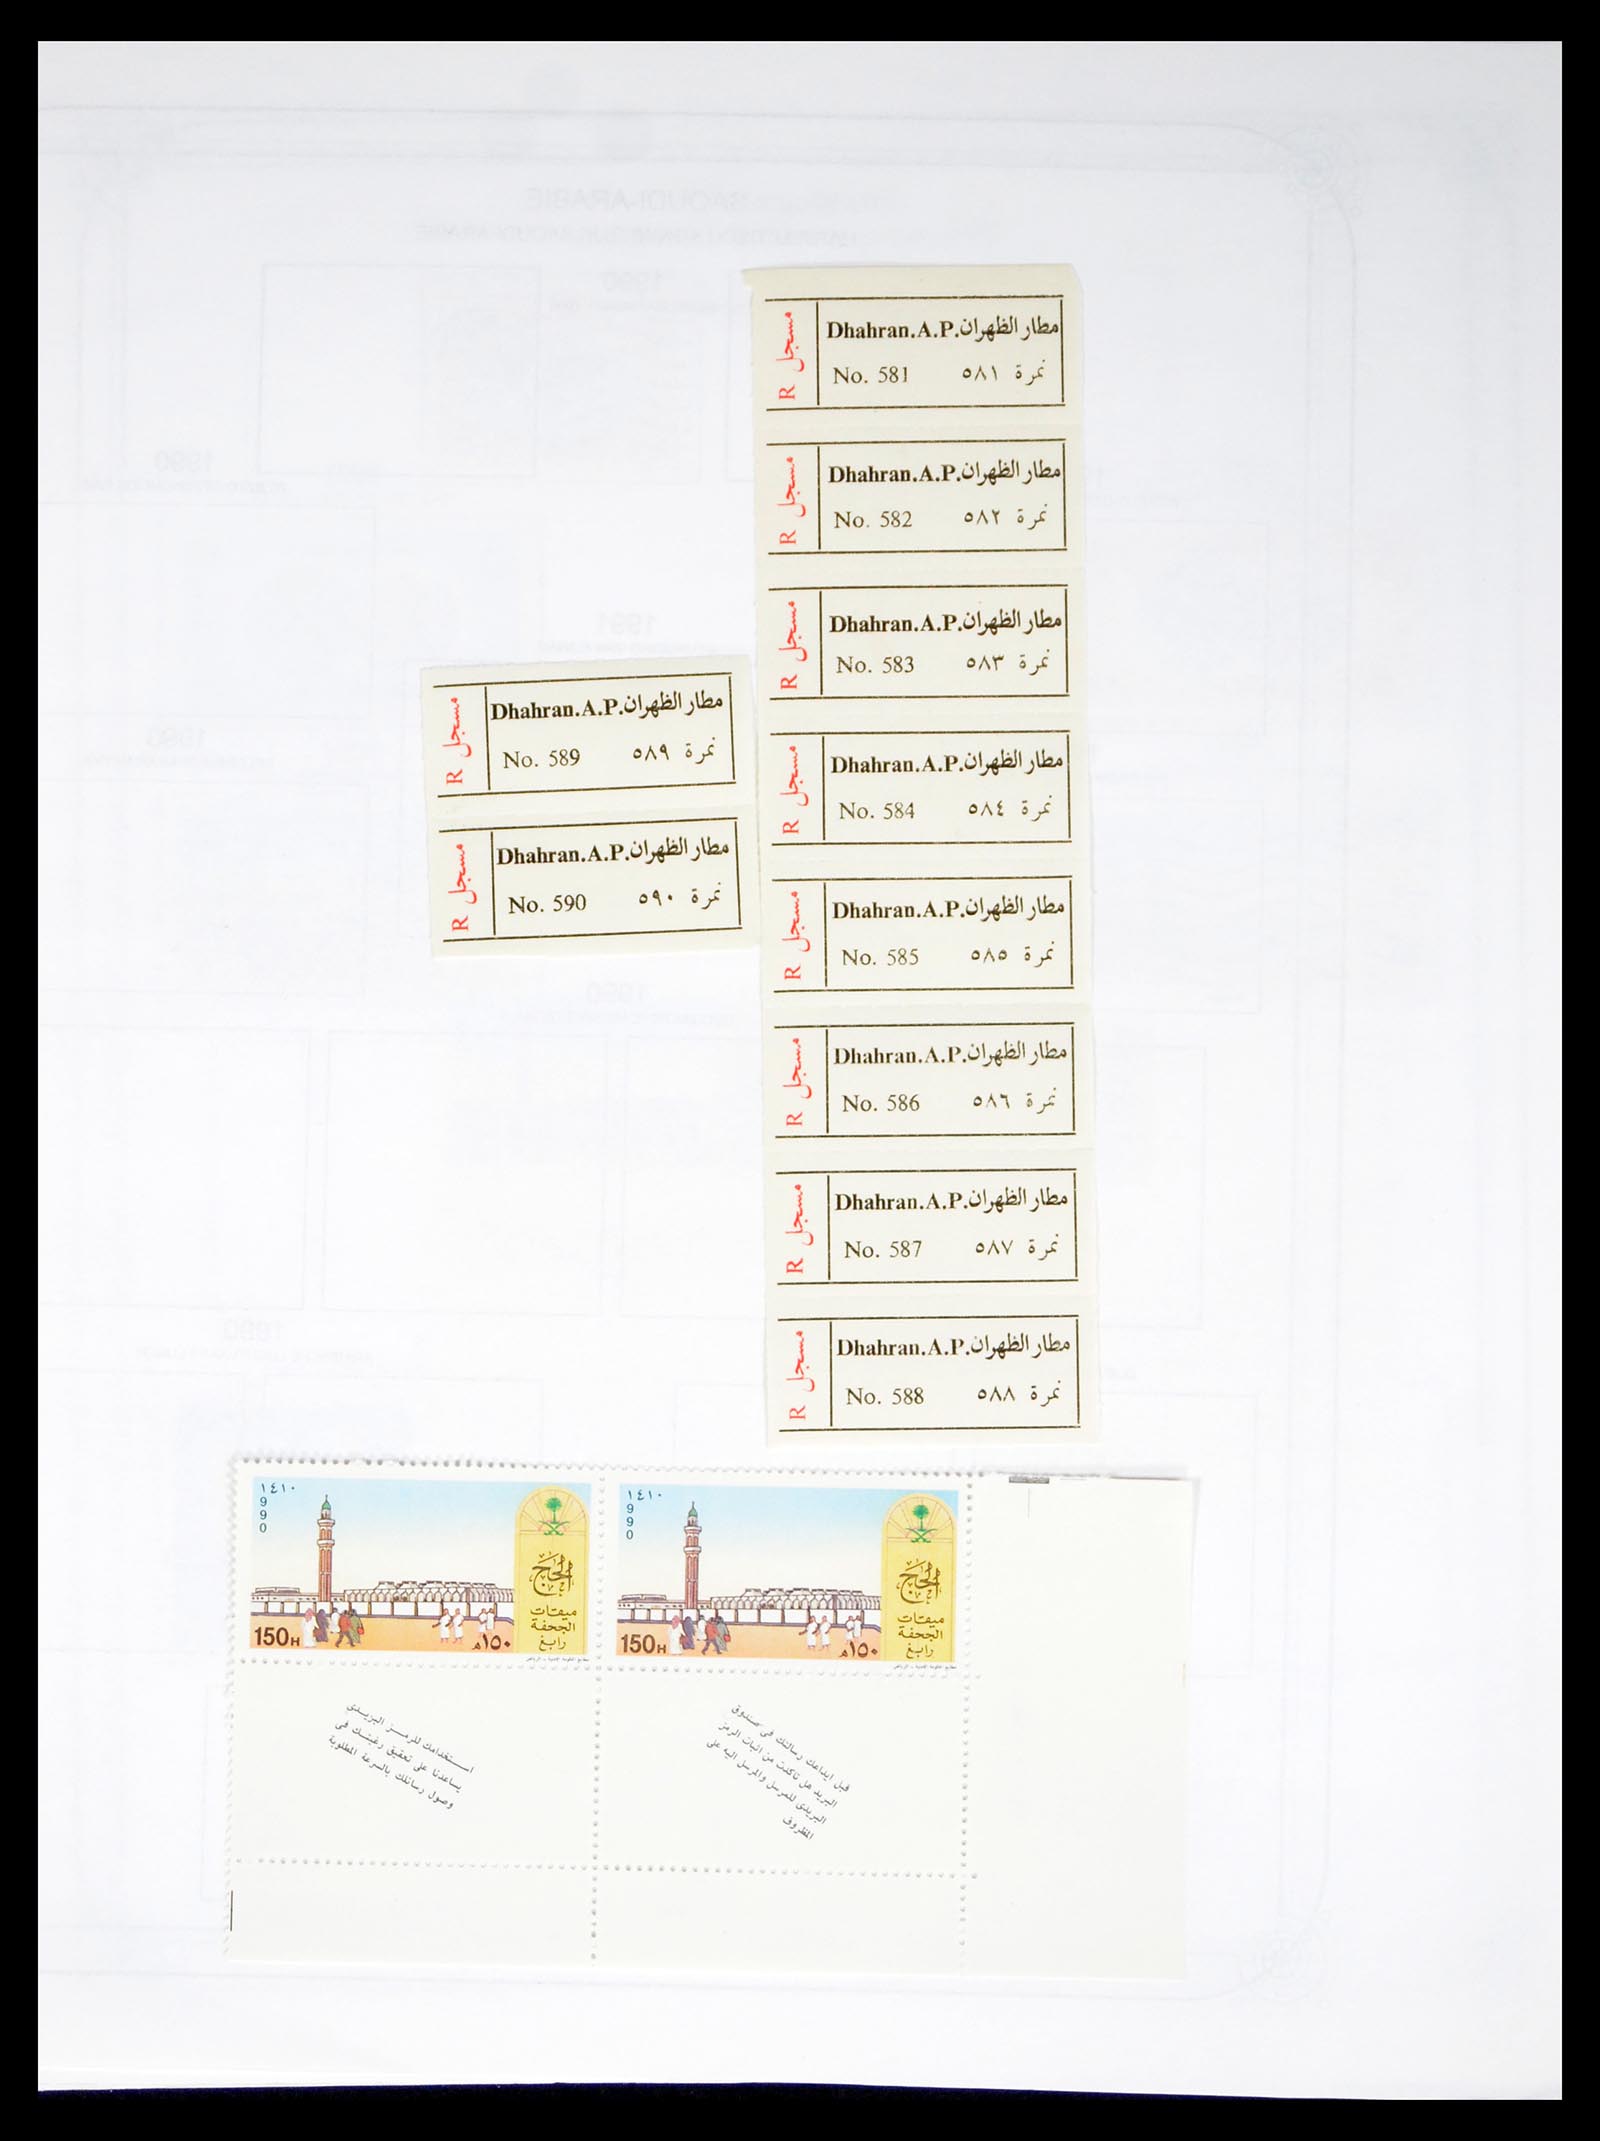 مسجل R
Dhahran.A.P. مطار الظهران
No. 581 ٥٨١ نمرة
مسجل R
Dhahran.A.P. مطار الظهران
No. 582 ٥٨٢ نمرة
مسجل R
Dhahran.A.P. مطار الظهران
No. 583 ٥٨٣ نمرة
مسجل R
Dhahran.A.P. مطار الظهران
No. 584 ٥٨٤ نمرة
مسجل R
Dhahran.A.P. مطار الظهران
No. 585 ٥٨٥ نمرة
مسجل R
Dhahran.A.P. مطار الظهران
No. 586 ٥٨٦ نمرة
مسجل R
Dhahran.A.P. مطار الظهران
No. 587 ٥٨٧ نمرة
مسجل R
Dhahran.A.P. مطار الظهران
No. 588 ٥٨٨ نمرة
مسجل R
Dhahran.A.P. مطار الظهران
No. 589 ٥٨٩ نمرة
مسجل R
Dhahran.A.P. مطار الظهران
No. 590 ٥٩٠ نمرة
١٤١٠
990
الحج
ميقات
الجحفة
رابغ
150H ١٥٠هـ
مطابع الحكومة الأمنية - الرياض
١٤١٠
990
الحج
ميقات
الجحفة
رابغ
150H ١٥٠هـ
مطابع الحكومة الأمنية - الرياض
استخدامك للرمز البريدى
يساعدنا على تحقيق رغبتك فى
وصول رسائلك بالسرعة المطلوبة
قبل ايداعك رسالتك فى صندوق
البريد هل تاكدت من اثبات الرمز
البريدى للمرسل والمرسل اليه على
المظروف